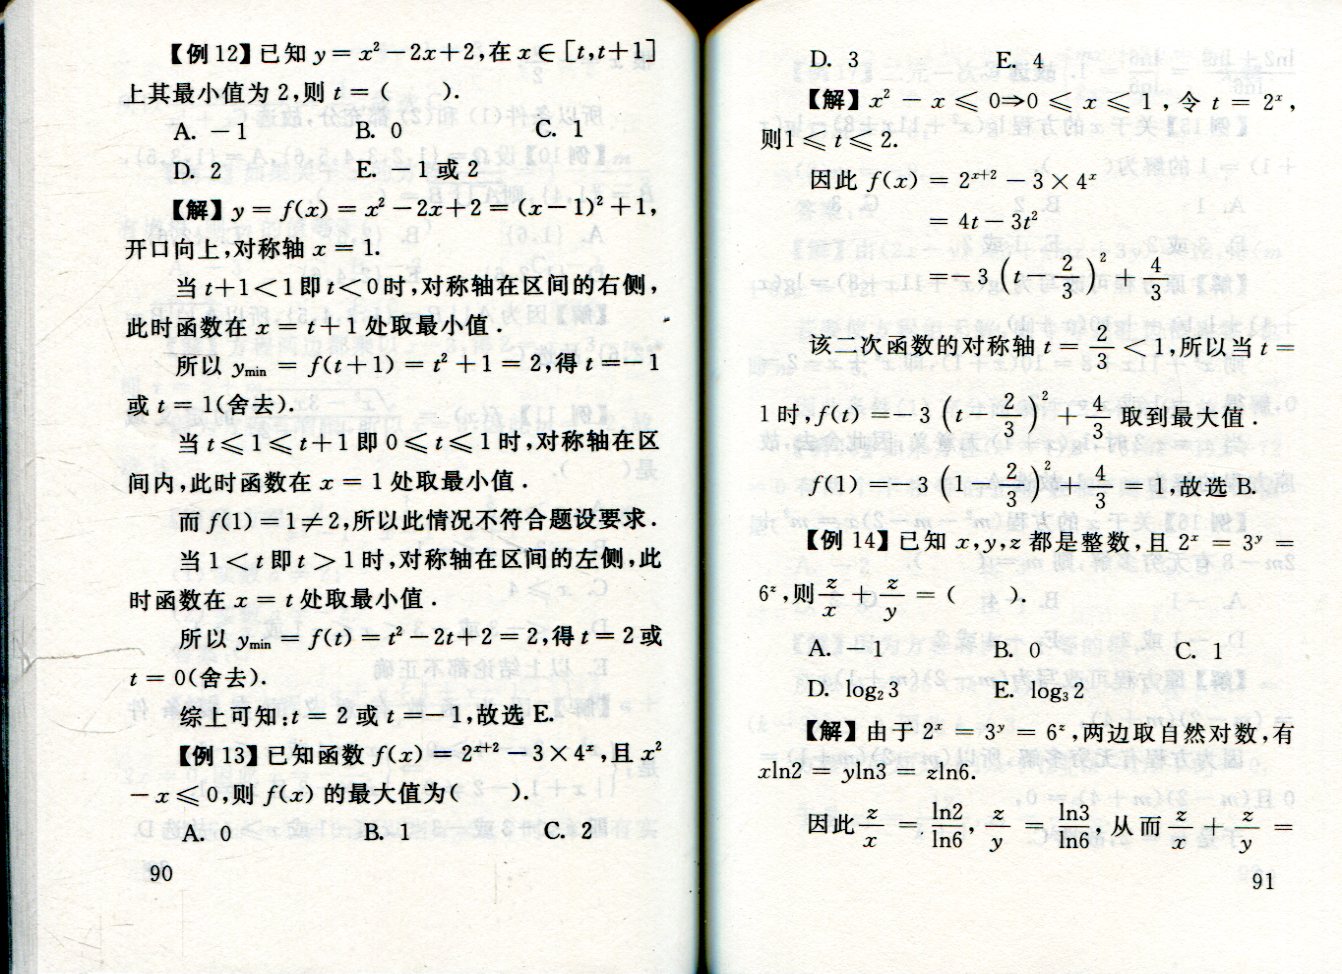 【例 12】已知 y = x² − 2x + 2,在 x ∈ [t,t+1]
上其最小值为 2,则 t = (　　).
A. −1　B. 0　C. 1
D. 2　E. −1 或 2
【解】y = f(x) = x² − 2x + 2 = (x−1)² + 1,
开口向上,对称轴 x = 1.
当 t+1<1 即 t<0 时,对称轴在区间的右侧,
此时函数在 x = t+1 处取最小值.
所以 yₘᵢₙ = f(t+1) = t² + 1 = 2,得 t = −1
或 t = 1(舍去).
当 t ⩽ 1 ⩽ t+1 即 0 ⩽ t ⩽ 1 时,对称轴在区
间内,此时函数在 x = 1 处取最小值.
而 f(1) = 1 ≠ 2,所以此情况不符合题设要求.
当 1 < t 即 t > 1 时,对称轴在区间的左侧,此
时函数在 x = t 处取最小值.
所以 yₘᵢₙ = f(t) = t² − 2t + 2 = 2,得 t = 2 或
t = 0(舍去).
综上可知:t = 2 或 t = −1,故选 E.
【例 13】已知函数 f(x) = 2ˣ⁺² − 3×4ˣ,且 x²
− x ⩽ 0,则 f(x) 的最大值为(　　).
A. 0　B. 1　C. 2
90
D. 3　E. 4
【解】x² − x ⩽ 0⇒0 ⩽ x ⩽ 1,令 t = 2ˣ,
则1 ⩽ t ⩽ 2.
因此 f(x) = 2ˣ⁺² − 3 × 4ˣ
= 4t − 3t²
= −3(t − 2/3)² + 4/3
该二次函数的对称轴 t = 2/3 < 1,所以当 t =
1 时,f(t) = −3(t − 2/3)² + 4/3 取到最大值.
f(1) = −3(1 − 2/3)² + 4/3 = 1,故选 B.
【例 14】已知 x,y,z 都是整数,且 2ˣ = 3ʸ =
6ᶻ,则 z/x + z/y = (　　).
A. −1　B. 0　C. 1
D. log₂3　E. log₃2
【解】由于 2ˣ = 3ʸ = 6ᶻ,两边取自然对数,有
xln2 = yln3 = zln6.
因此 z/x = ln2/ln6, z/y = ln3/ln6,从而 z/x + z/y =
91